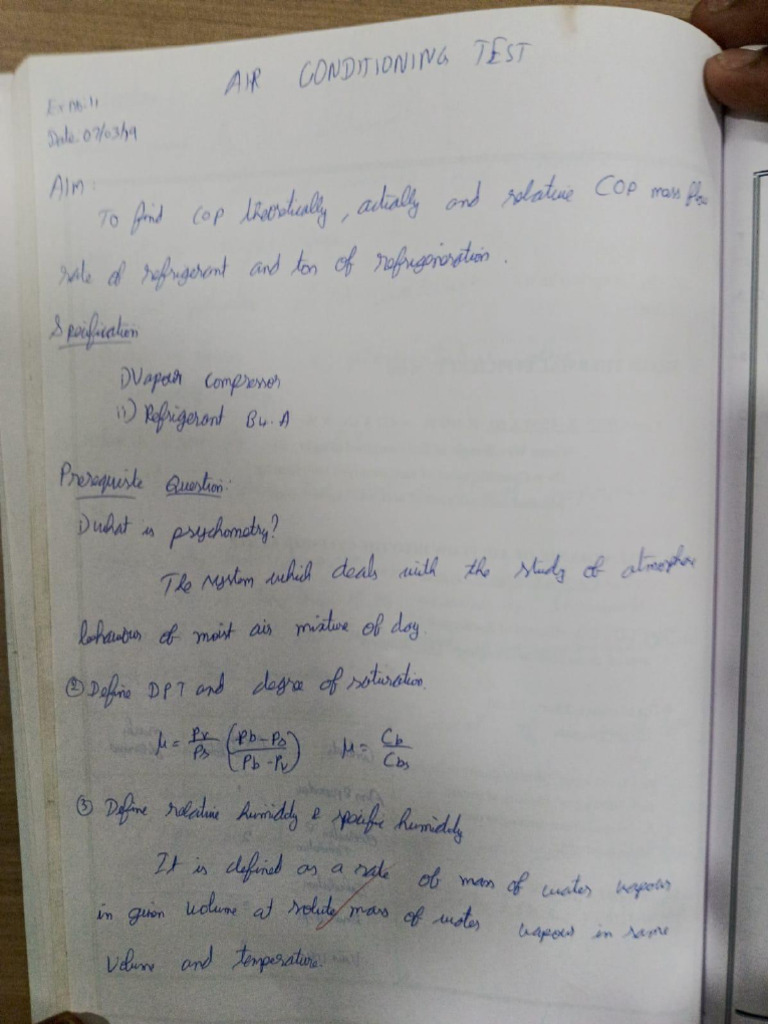 AIR CONDITIONING TEST
Ex no: 11
Date: 07/03/19
AIM:
To find COP theoretically, actially and relative COP mass flow
rate of refrigerant and ton of refrigeration.
Specification
i) Vapour compressor
ii) Refrigerant B4.A
Prerequiste Question:
1) What is psychometry?
The system which deals with the study of atmosphere
behaviour of moist air mixture of day.
② Define DPT and degree of saturation.
μ = Pv/Ps (Pb-Ps/Pb-Pv) μ = Cb/Cbs
③ Define relative humiddy & specific humiddy
It is defined as a rate of mass of water vapour
in given volume at solute mass of water vapour in same
volume and temperature.